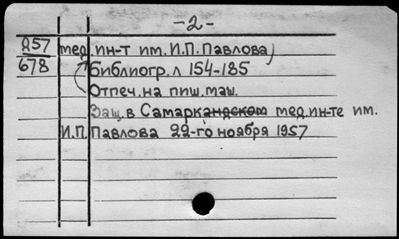 -2-
857 мед. ин-т им. И.П. Павлова)
678 Библиогр. л 154-185
Отпеч. на пиш. маш.
Защ. в Самаркандском мед. ин-те им.
И.П. Павлова 22-го ноября 1957